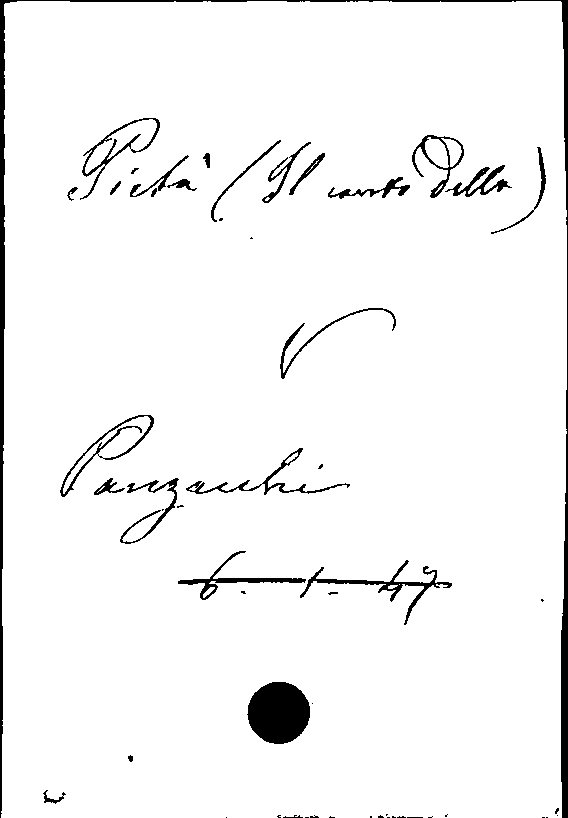 Pietà (Il canto della)
V
Panzacchi
6. 1. 47